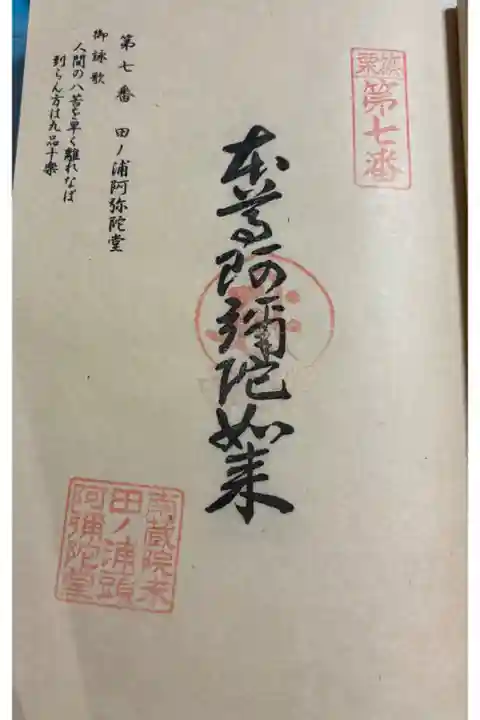 篠栗
第七番
本尊阿彌陀如来
第七番 田ノ浦阿弥陀堂
御詠歌
人間の八苦を早く離れなば
到らん方は九品十楽
南蔵院末
田ノ浦頭
阿彌陀堂